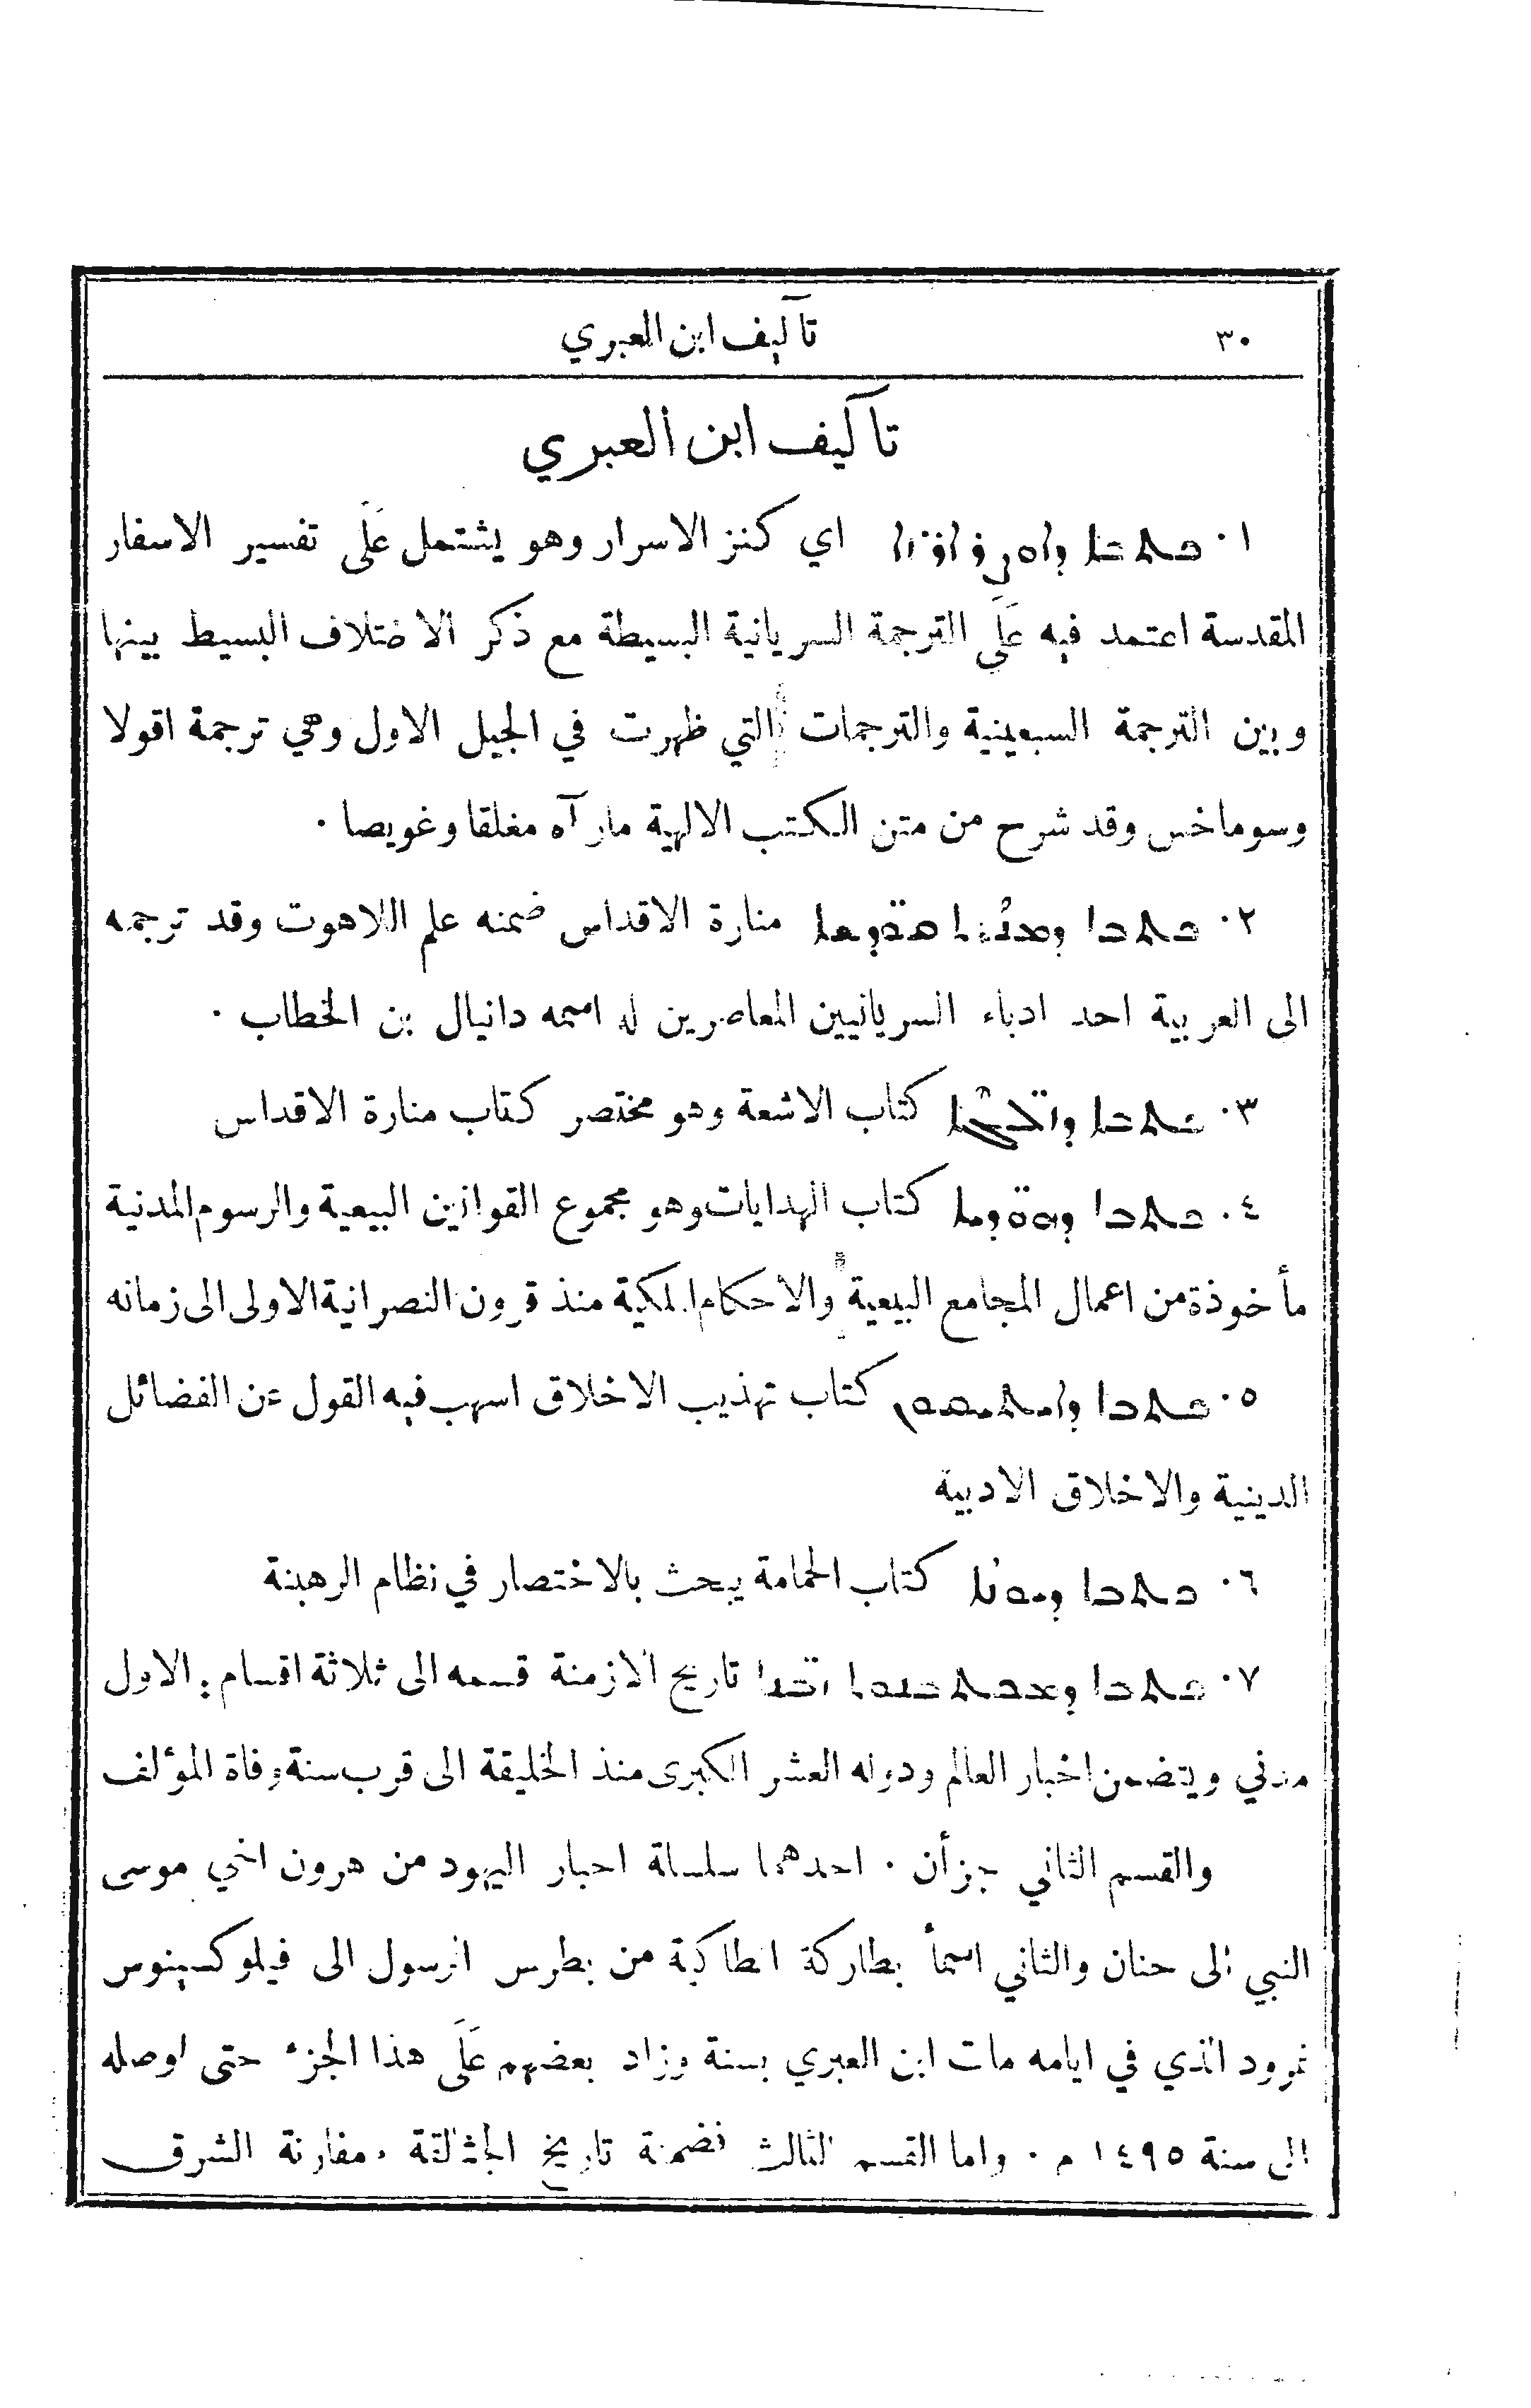 ٣٠ تآليف ابن العبري
تآليف ابن العبري
١٠ ܟܬܒܐ ܕܐܘܨܪ ܐܪ̈ܙܐ اي كنز الاسرار وهو يشتمل عَلَى تفسير الاسفار
المقدسة اعتمد فيه عَلَى الترجمة السريانية البسيطة مع ذكر الاختلاف البسيط بينها
وبين الترجمة السبعينية والترجمات التي ظهرت في الجيل الاول وهي ترجمة اقولا
وسوماخس وقد شرح من متن الكتب الالهية ما رآه مغلقا وغويصا ٠
٢٠ ܟܬܒܐ ܕܡܢܪܬ ܩܘܕ̈ܫܐ منارة الاقداس ضمنه علم اللاهوت وقد ترجمه
الى العربية احد ادباء السريانيين المعاصرين له اسمه دانيال بن الخطاب ٠
٣٠ ܟܬܒܐ ܕܙܠܓ̈ܐ كتاب الاشعة وهو مختصر كتاب منارة الاقداس
٤٠ ܟܬܒܐ ܕܗܘ̈ܕܝܐ كتاب الهدايات وهو مجموع القوانين البيعية والرسوم المدنية
مأخوذة من اعمال المجامع البيعية والاحكام الملكية منذ قرون النصرانية الاولى الى زمانه
٥٠ ܟܬܒܐ ܕܐܝܬܝܩܘܢ كتاب تهذيب الاخلاق اسهب فيه القول عن الفضائل
الدينية والاخلاق الادبية
٦٠ ܟܬܒܐ ܕܝܘܢܐ كتاب الحمامة يبحث بالاختصار في نظام الرهبنة
٧٠ ܟܬܒܐ ܕܡܟܬܒܢܘܬ ܙܒ̈ܢܐ تاريخ الازمنة قسمه الى ثلاثة اقسام : الاول
مدني ويتضمن اخبار العالم ودوله العشر الكبرى منذ الخليقة الى قرب سنة وفاة المؤلف
والقسم الثاني جزأن ٠ احدهما سلسلة احبار اليهود من هرون اخي موسى
النبي الى حنان والثاني اسمأ بطاركة انطاكية من بطرس الرسول الى فيلوكسينوس
نمرود الذي في ايامه مات ابن العبري بسنة وزاد بعضهم عَلَى هذا الجزء حتى اوصله
الى سنة ١٤٩٥ م ٠ واما القسم الثالث فضمنة تاريخ الجثالقة ومفارنة الشرق